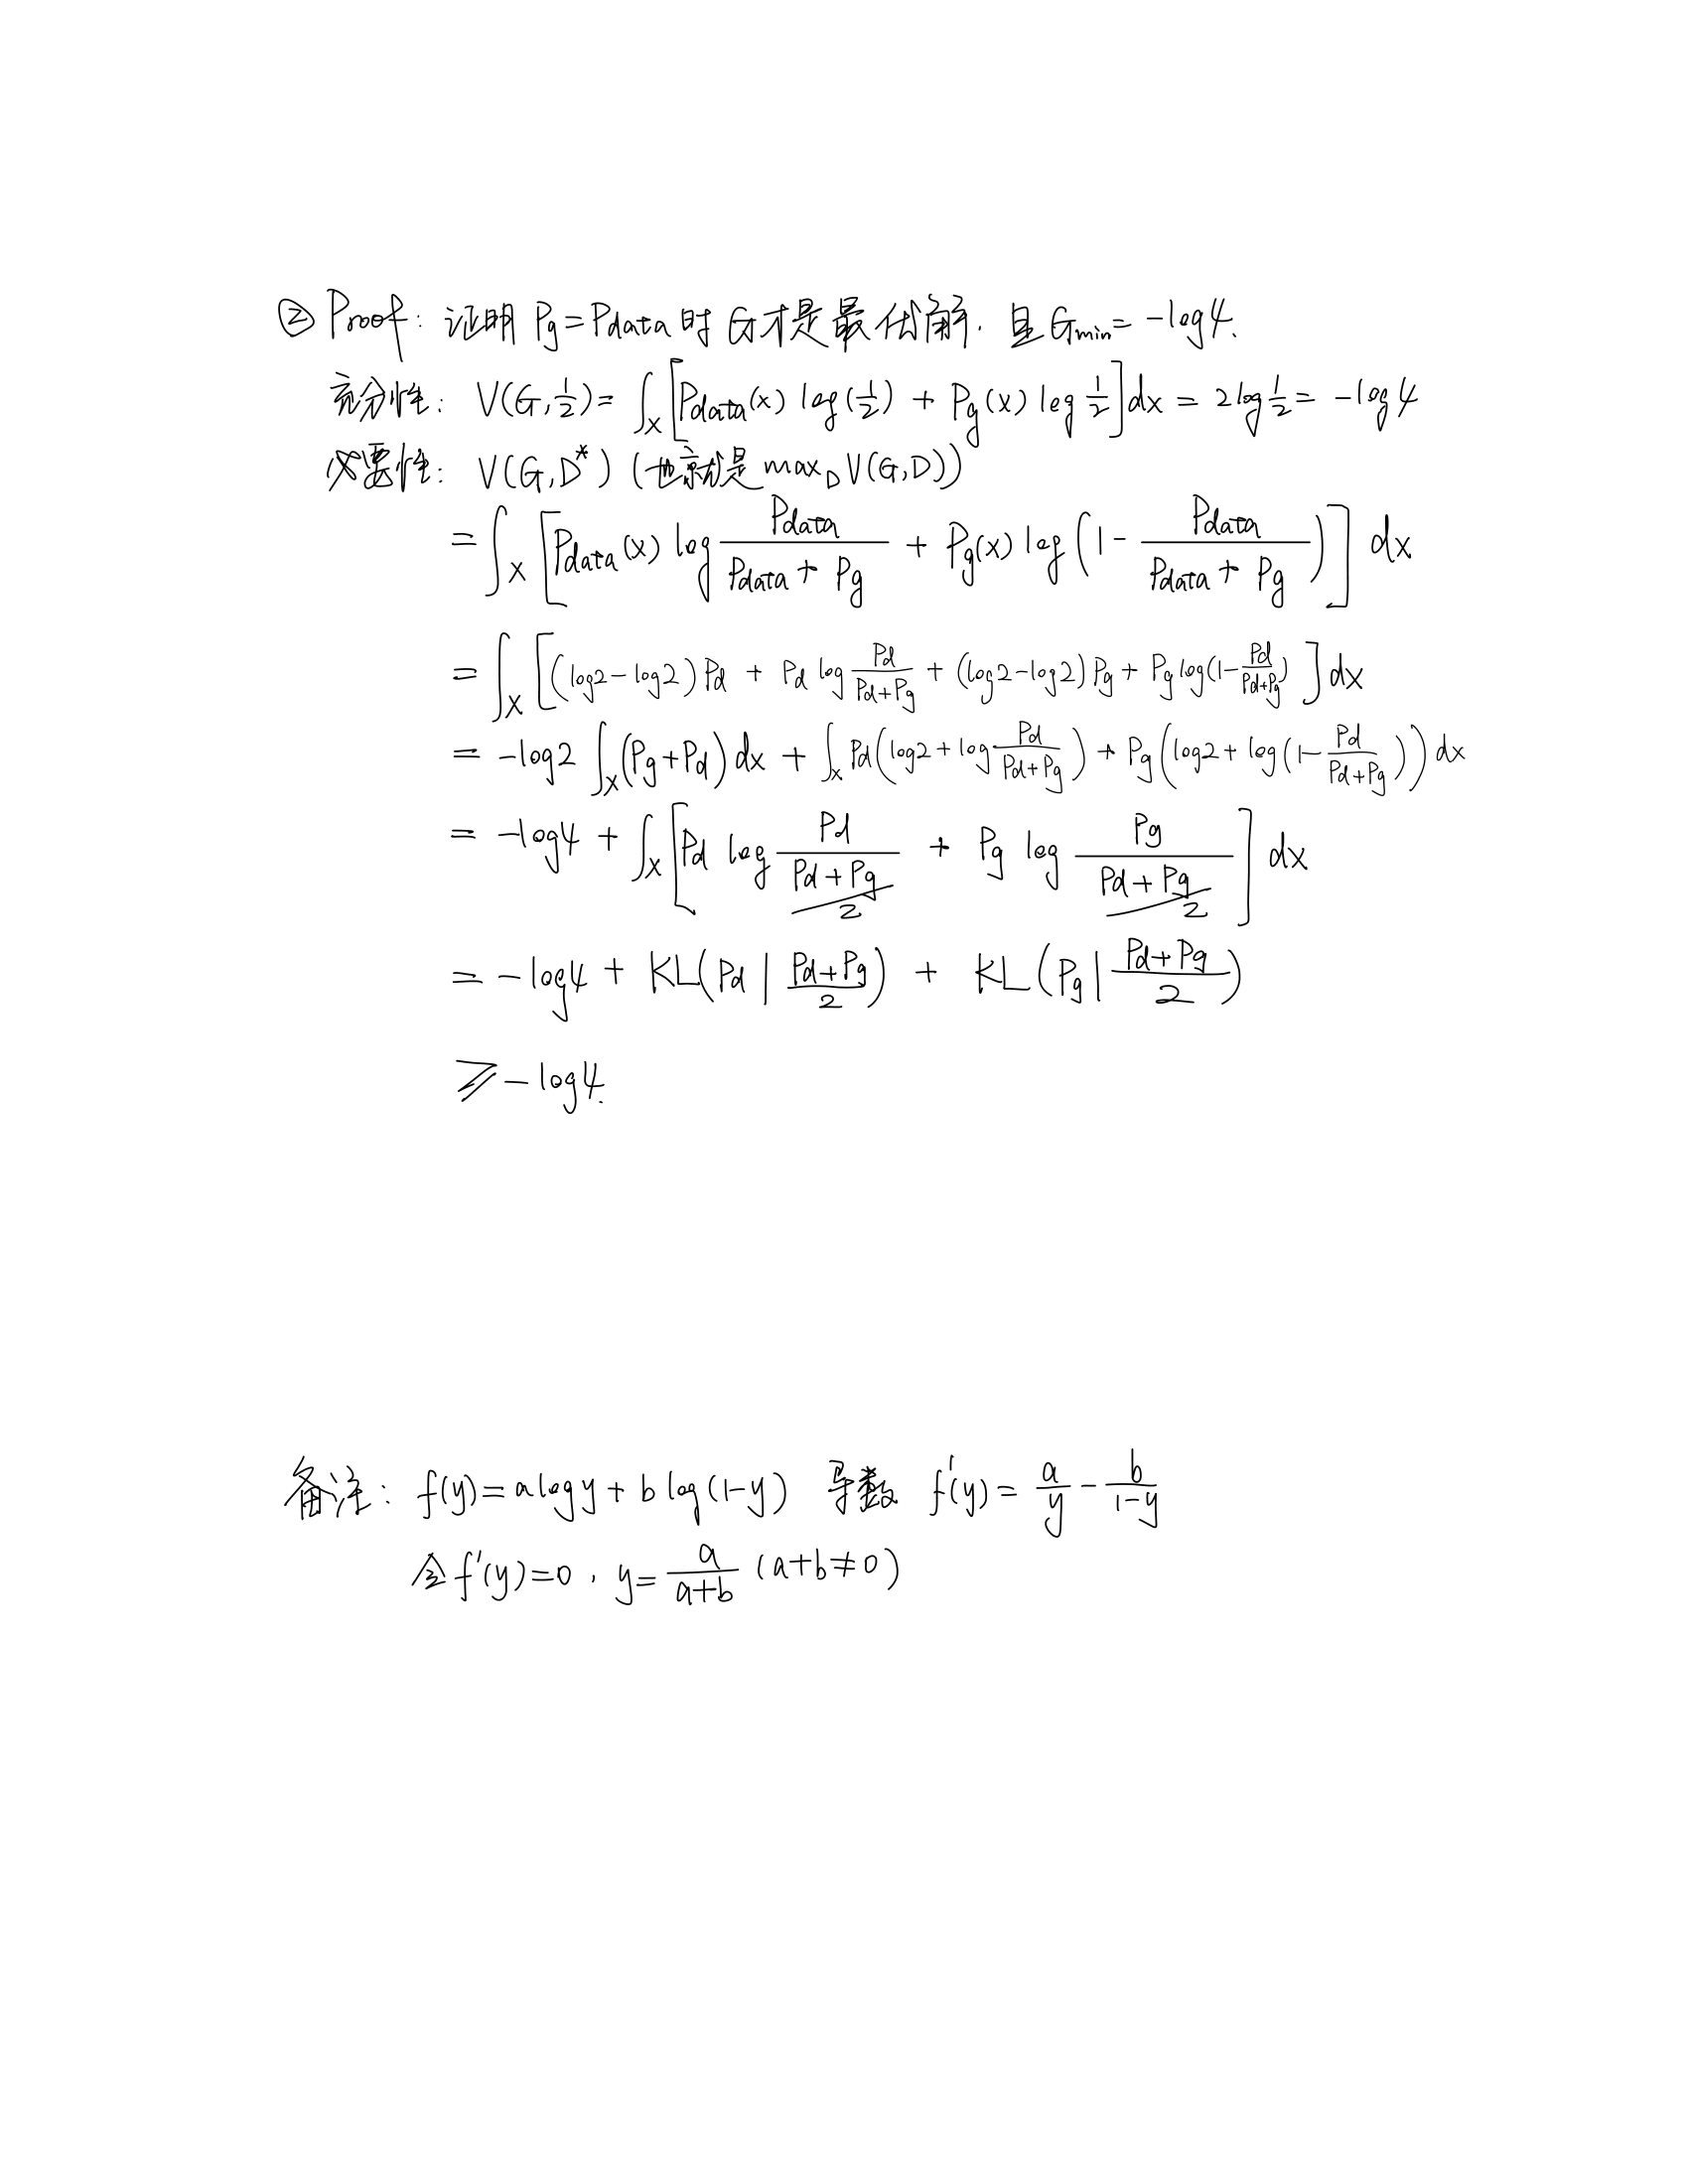 ② Proof: 证明 Pg=Pdata 时 G才是最优解. 且 Gmin= -log4.
充分性: V(G,1/2)= ∫x [Pdata(x) log(1/2) + Pg(x) log 1/2] dx = 2log 1/2 = -log4
必要性: V(G,D*) (也就是 maxD V(G,D))
= ∫x [Pdata(x) log Pdata/(Pdata + Pg) + Pg(x) log (1 - Pdata/(Pdata + Pg))] dx
= ∫x [(log2-log2)Pd + Pd log Pd/(Pd+Pg) + (log2-log2)Pg + Pg log(1-Pd/(Pd+Pg))] dx
= -log2 ∫x (Pg+Pd) dx + ∫x Pd(log2+log Pd/(Pd+Pg)) + Pg(log2+log(1-Pd/(Pd+Pg))) dx
= -log4 + ∫x [Pd log Pd/((Pd+Pg)/2) + Pg log Pg/((Pd+Pg)/2)] dx
= -log4 + KL(Pd | (Pd+Pg)/2) + KL(Pg | (Pd+Pg)/2)
⩾ -log4.
备注: f(y)= a log y + b log (1-y) 导数 f'(y) = a/y - b/(1-y)
令 f'(y)=0 , y= a/(a+b) (a+b≠0)